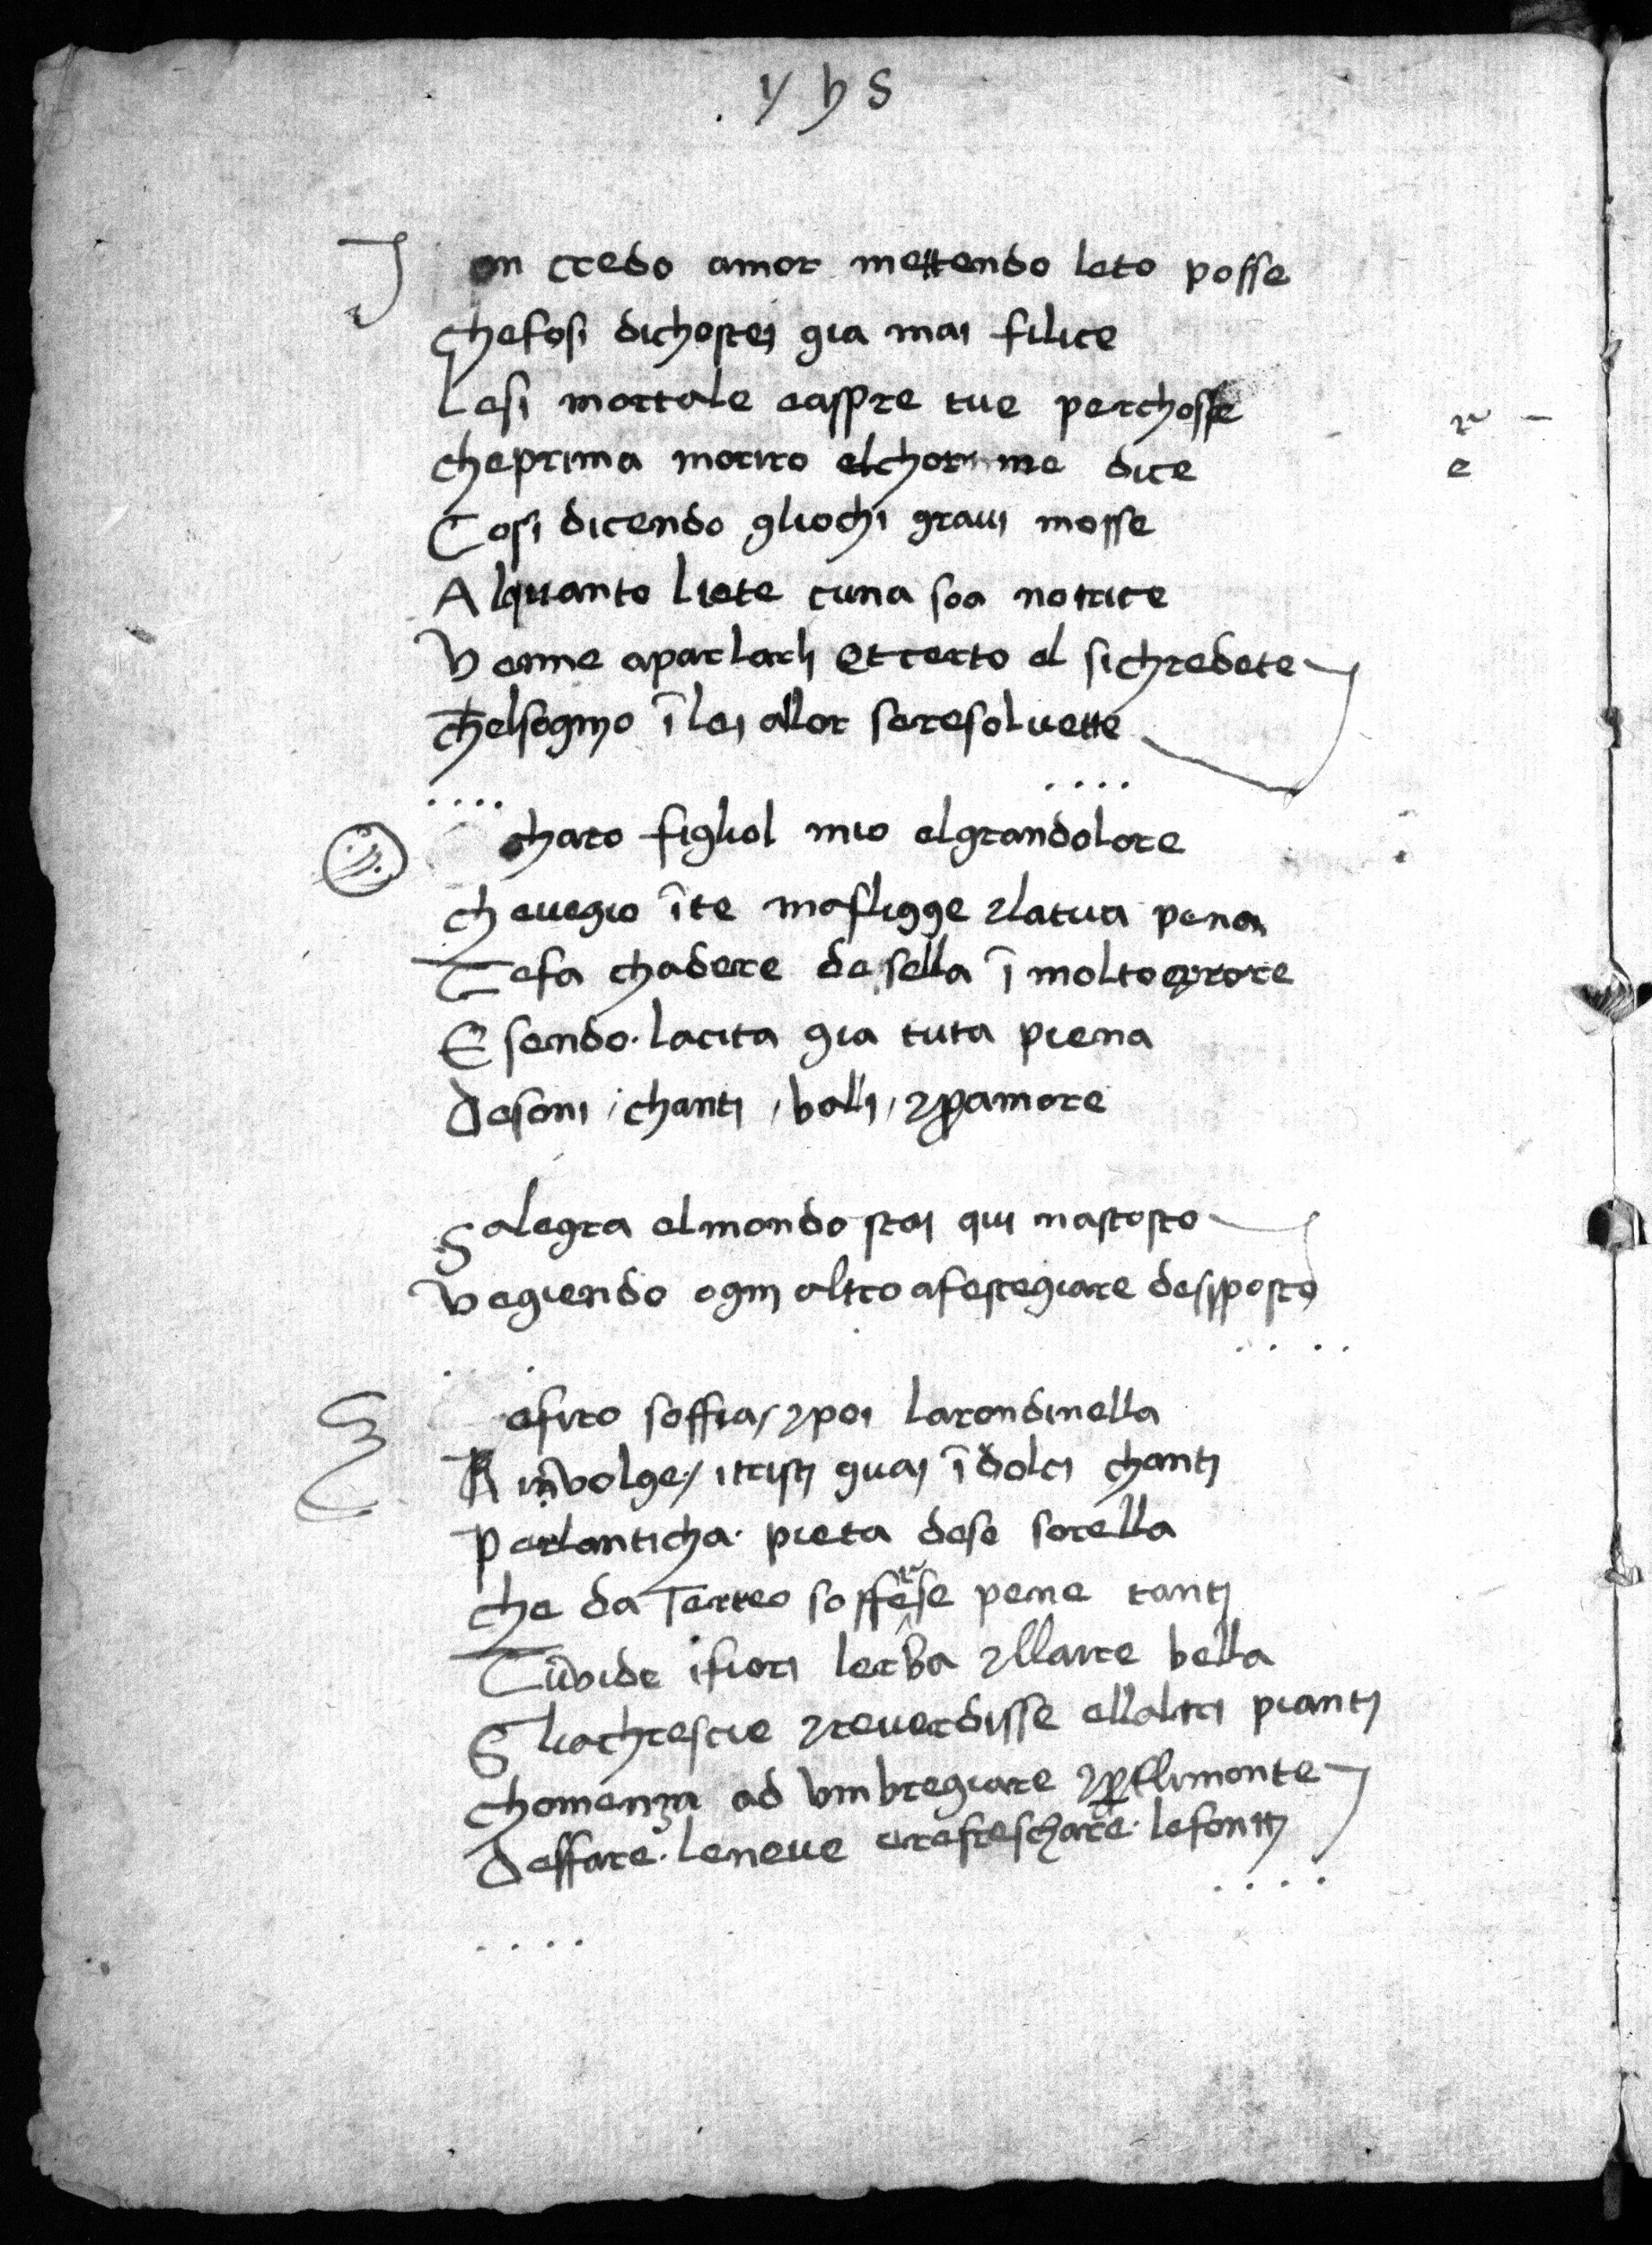 . y h s
I on credo amor mettendo leto posse
chefosi dichostej gia mai filice
Lesi mortale easpre tue perchosse
cheprima moriro elchor me dice
Cosi dicendo gliochi graui mosse
Alquanto liete cuna soa notrice
Venne aparlarli et certo el si chredete
chelsogno ī lej allor seresoluette
.... ....
O charo figliol mio elgrandolore
cheuegio īte mafligge ⁊latua pena
Tefa chadere desella ī moltoerrore
Esendo· lacita gia tuta piena
desoni / chanti / balli / ⁊ꝑamore
Salegra elmondo staj qui nascosto
Vegiendo ognj altro afestegiare dessposto
.. ....
Z efiro soffia / ⁊poi larondinella
Rīnvolge / itristj guaj ī dolci chantj
Perlanticha· pieta dese sorella
che da Terreo sofferse pene tantj
Tuvide ifiori lerba ⁊llarte bella
Gliachrescie ⁊reuerdisse ellaltri piantj
chomenza ad vmbregiare ⁊ꝑ elimonte
deffare· leneue erefreschare· lefontj
.... ....
r –
e